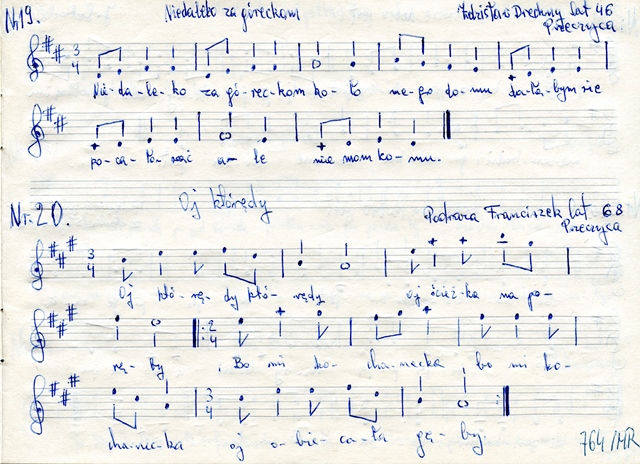 Nr 19. Niedaleko za góreckom Zdzisław Drechny lat 46
Przeczyca
3
4
Nie-da-le-ko za gó-rec-kom ko-ło me-go do-mu da-ła-bym sie
po-ca-ło-wać a-le nie mom ko-mu.
Nr. 20. Oj którędy Podraza Franciszek lat 68
Przeczyca
3
4
Oj któ-rę-dy któ-rędy oj ściéż-ka na po-
2
4
rę-by, Bo mi ko-cha-necka, bo mi ko-
3
4
cha-nec-ka oj o-bie-ca-ła gę-by.
764/MR